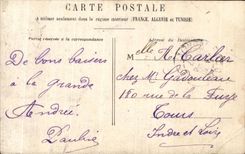 CARTE POSTALE
A utiliser seulement dans le régime intérieur (FRANCE, ALGÉRIE et TUNISIE)
Partie réservée à la correspondance
Adresse du Destinataire
De bons baisers
à la grande
Andrée.
Melle H. Carlier
chez Mr
180 rue de la
Tours
Indre et Loire